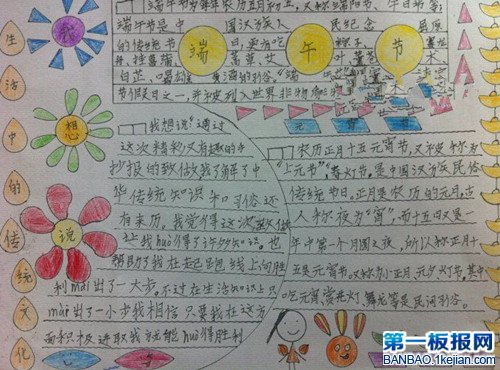 生活中的传统文化
我想说
端午节
端午节为每年农历五月初五，又称端阳节、午日节等；
端午节是中国汉族人民纪念屈原
的传统节日，更有吃粽子
节假日之一，并被列入世界非物质
元宵节
"我想说"通过
这次精彩又有趣的手
抄报的致做我了解了中
华传统知识和习俗还
有来历。我觉得这次
让我huò得了许多知识，也
帮助了我在起跑线上向胜
利mài出了一大步，不过在生活知识上只
mài出了一小步我相信只要我在这方
面积极进取我就能huò得胜利
农历正月十五元宵节，又被称为
"上元节""春灯节，是中国汉族民俗
传统节日。正月是农历的元月，古
人称夜为"宵"，而十五日又是一
年中第一个月圆之夜，所以称正月十
五是元宵节又称为小正月、元夕灯节，其中
吃元宵、赏花灯、舞龙等是民间习俗。
第一板报网
BANBAO.1kejian.com